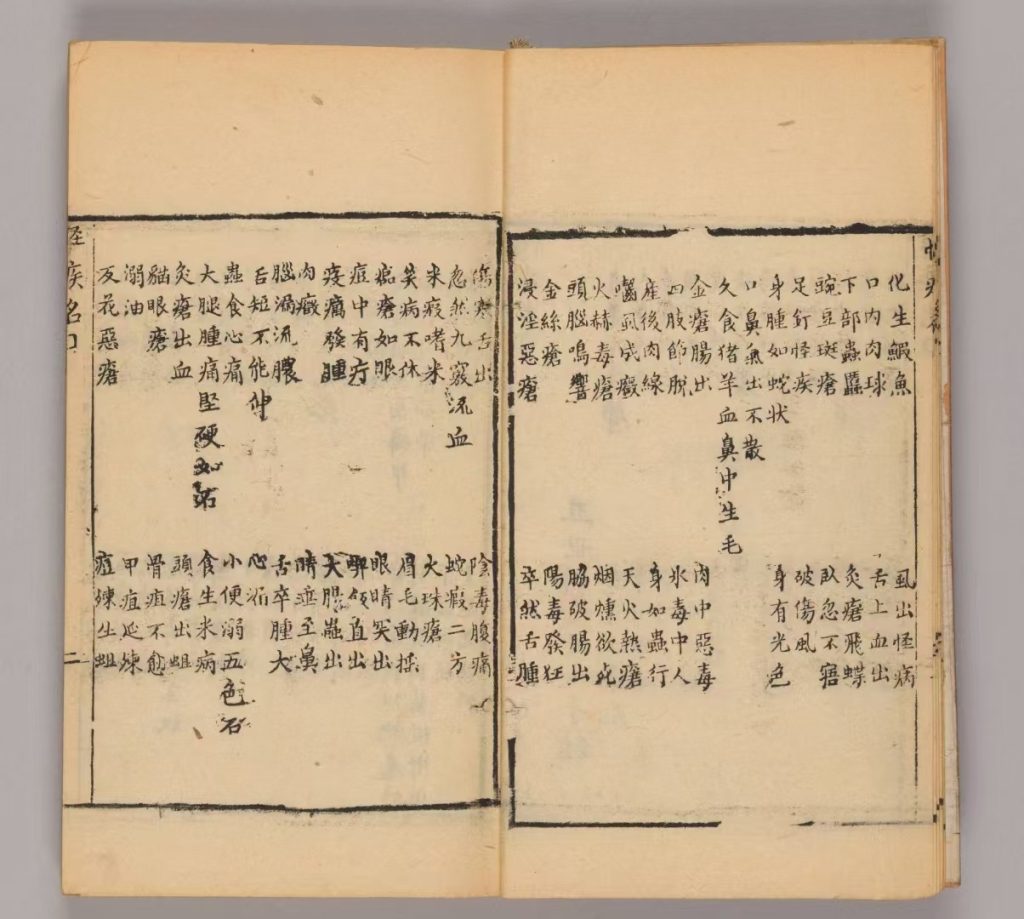 化生鰕魚 虱出怪病
口內肉球 舌上血出
下部蟲䘌 灸瘡飛蝶
豌豆斑瘡 臥忽不寤
足釘怪疾 破傷風
身腫如蛇状 身有光色
口鼻氣出不散
久食猪羊血鼻中生毛
金瘡腸出 肉中惡毒
四肢節脫 氷毒中人
産後肉線 身如蟲行
囓虱成癥 天火熱瘡
火赫毒瘡 烟燻欲死
頭腦鳴響 脇破腸出
金絲瘡 陽毒發狂
浸淫惡瘡 卒然舌腫
傷寒舌出 陰毒腹痛
忽然九竅流血 蛇瘕二方
米瘕嗜米 火珠瘡
笑病不休 眉毛動揺
瘡如眼 眼睛突出
痘中有疔 直
發腫 大腸蟲出
肉癥 睛垂至鼻
腦漏流膿 舌卒腫大
舌短不能伸 心漏
蟲食心痛 小便溺五色石
大腿腫痛堅硬如 食生米病
灸瘡出血 頭瘡出蛆
貓眼瘡 骨疽不愈
溺油 甲疽延
反花惡瘡 痘生蛆
疾名 二